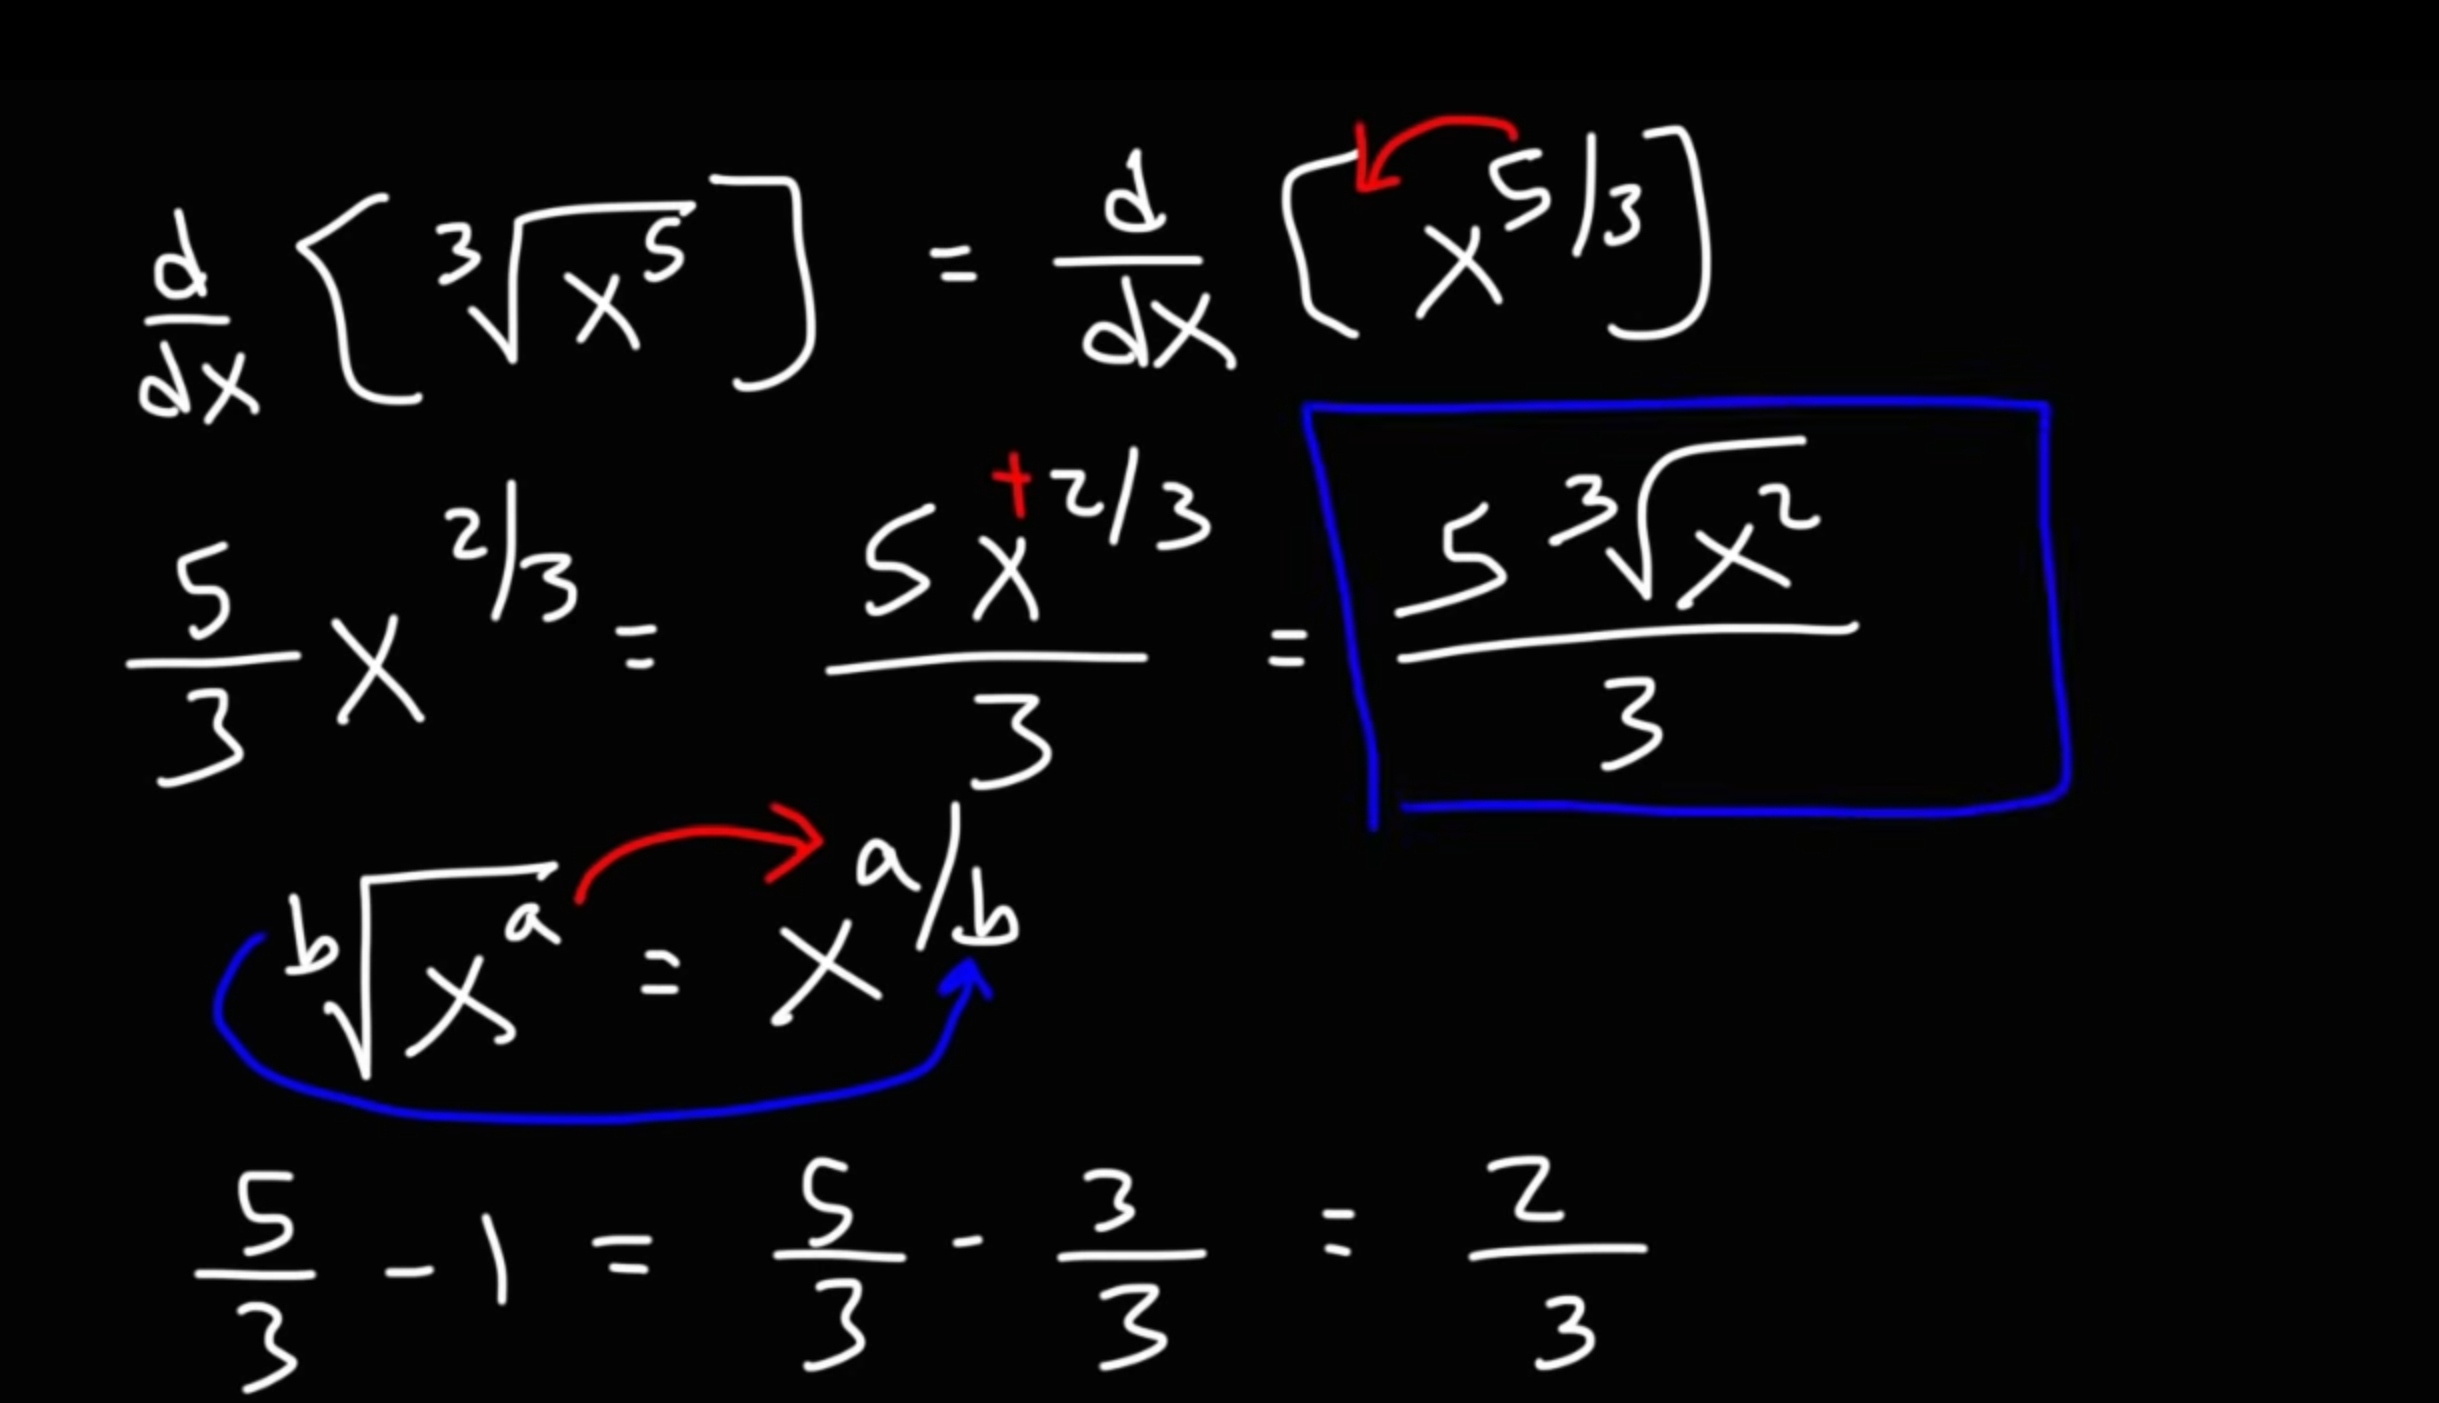 d/dx [∛(x⁵)] = d/dx [x^(5/3)]
5/3 x^(2/3) = 5x^(+2/3)/3 = 5∛(x²)/3
ᵇ√(x^a) = x^(a/b)
5/3 - 1 = 5/3 - 3/3 = 2/3